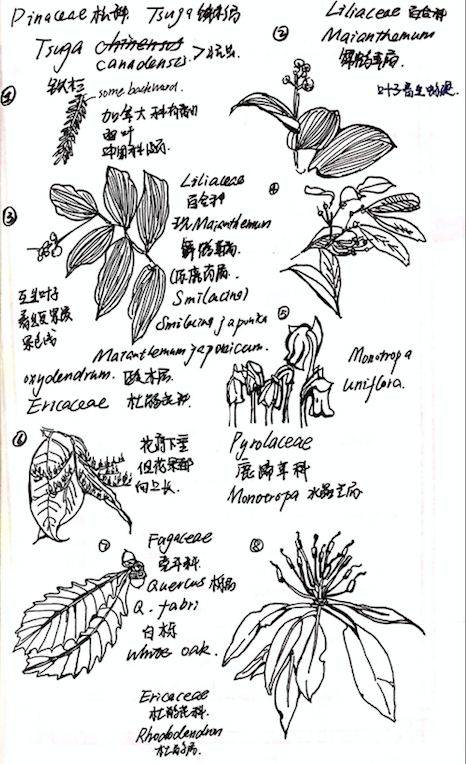 Pinaceae 松科. Tsuga 铁杉属
Tsuga chinensis
canadensis
①
铁杉
some backward.
加拿大
四叶
②
Liliaceae 百合科
Maianthemum
舞鹤草属.
③
Liliaceae
百合科
Maianthemum
舞鹤草属
(原鹿药属.
Smilacina)
Smilacina japonica
Maianthemum japonicum.
互生叶子
④
⑤
Monotropa
uniflora.
Pyrolaceae
鹿蹄草科
Monotropa 水晶兰属
oxydendrum. 酸木属
Ericaceae 杜鹃花科
⑥
花序下垂
但花果部
向上长.
⑦
Fagaceae
壳斗科.
Quercus 栎属
Q. fabri
白栎
White oak.
⑧
Ericaceae
杜鹃花科.
Rhododendron
杜鹃属.